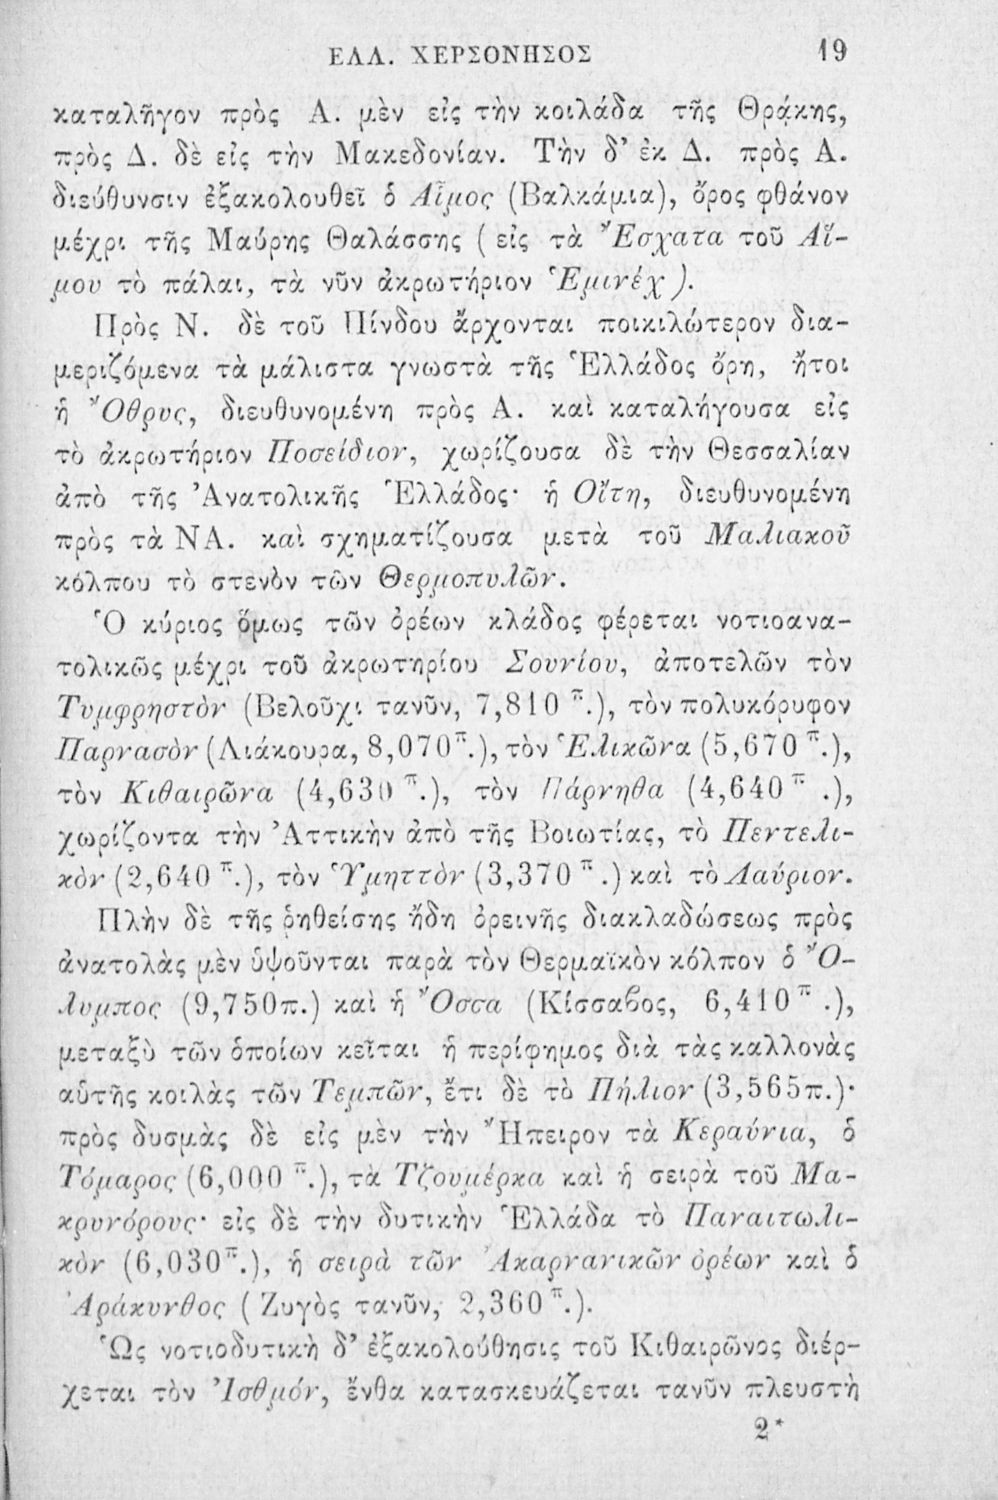 ΕΛΛ. ΧΕΡΣΟΝΗΣΟΣ 19
καταλῆγον πρὸς Α. μὲν εἰς τὴν κοιλάδα τῆς Θράκης,
πρὸς Δ. δὲ εἰς τὴν Μακεδονίαν. Τὴν δ’ ἐκ Δ. πρὸς Α.
διεύθυνσιν ἐξακολουθεῖ ὁ Αἷμος (Βαλκάμια), ὄρος φθάνον
μέχρι τῆς Μαύρης Θαλάσσης ( εἰς τὰ Ἔσχατα τοῦ Αἵ-
μου τὸ πάλαι, τὰ νῦν ἀκρωτήριον Ἑμινέχ ).
Πρὸς Ν. δὲ τοῦ Πίνδου ἄρχονται ποικιλώτερον δια-
μεριζόμενα τὰ μάλιστα γνωστὰ τῆς Ἑλλάδος ὄρη, ἤτοι
ἡ Ὄθρυς, διευθυνομένη πρὸς Α. καὶ καταλήγουσα εἰς
τὸ ἀκρωτήριον Ποσείδιον, χωρίζουσα δὲ τὴν Θεσσαλίαν
ἀπὸ τῆς Ἀνατολικῆς Ἑλλάδος· ἡ Οἴτη, διευθυνομένη
πρὸς τὰ ΝΑ. καὶ σχηματίζουσα μετὰ τοῦ Μαλιακοῦ
κόλπου τὸ στενὸν τῶν Θερμοπυλῶν.
Ὁ κύριος ὅμως τῶν ὀρέων κλάδος φέρεται νοτιοανα-
τολικῶς μέχρι τοῦ ἀκρωτηρίου Σουνίου, ἀποτελῶν τὸν
Τυμφρηστὸν (Βελοῦχι τανῦν, 7,810 π.), τὸν πολυκόρυφον
Παρνασὸν (Λιάκουρα, 8,070π.), τὸν Ἑλικῶνα (5,670 π.),
τὸν Κιθαιρῶνα (4,630 π.), τὸν Πάρνηθα (4,640 π .),
χωρίζοντα τὴν Ἀττικὴν ἀπὸ τῆς Βοιωτίας, τὸ Πεντελι-
κὸν (2,640 π.), τὸν Ὑμηττὸν (3,370 π .) καὶ τὸ Λαύριον.
Πλὴν δὲ τῆς ῥηθείσης ἤδη ὀρεινῆς διακλαδώσεως πρὸς
ἀνατολὰς μὲν ὑψοῦνται παρὰ τὸν Θερμαϊκὸν κόλπον ὁ Ὄ-
λυμπος (9,750π.) καὶ ἡ Ὄσσα (Κίσσαβος, 6,410 π .),
μεταξὺ τῶν ὁποίων κεῖται ἡ περίφημος διὰ τὰς καλλονὰς
αὑτῆς κοιλὰς τῶν Τεμπῶν, ἔτι δὲ τὸ Πήλιον (3,565π.)·
πρὸς δυσμὰς δὲ εἰς μὲν τὴν Ἤπειρον τὰ Κεραύνια, ὁ
Τόμαρος (6,000 π.), τὰ Τζουμέρκα καὶ ἡ σειρὰ τοῦ Μα-
κρυνόρους· εἰς δὲ τὴν δυτικὴν Ἑλλάδα τὸ Παναιτωλι-
κὸν (6,030π.), ἡ σειρὰ τῶν Ἀκαρνανικῶν ὀρέων καὶ ὁ
Ἀράκυνθος ( Ζυγὸς τανῦν, 2,360 π.).
Ὡς νοτιοδυτικὴ δ’ ἐξακολούθησις τοῦ Κιθαιρῶνος διέρ-
χεται τὸν Ἰσθμόν, ἔνθα κατασκευάζεται τανῦν πλευστὴ
2*